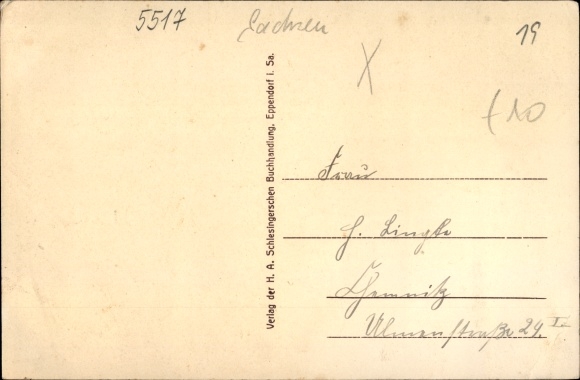 5517
Sachsen
19
X
10
Verlag der H. A. Schlesingerschen Buchhandlung, Eppendorf i. Sa.
Frau
H. Lingke
Chemnitz
Ulmenstraße 24. I.